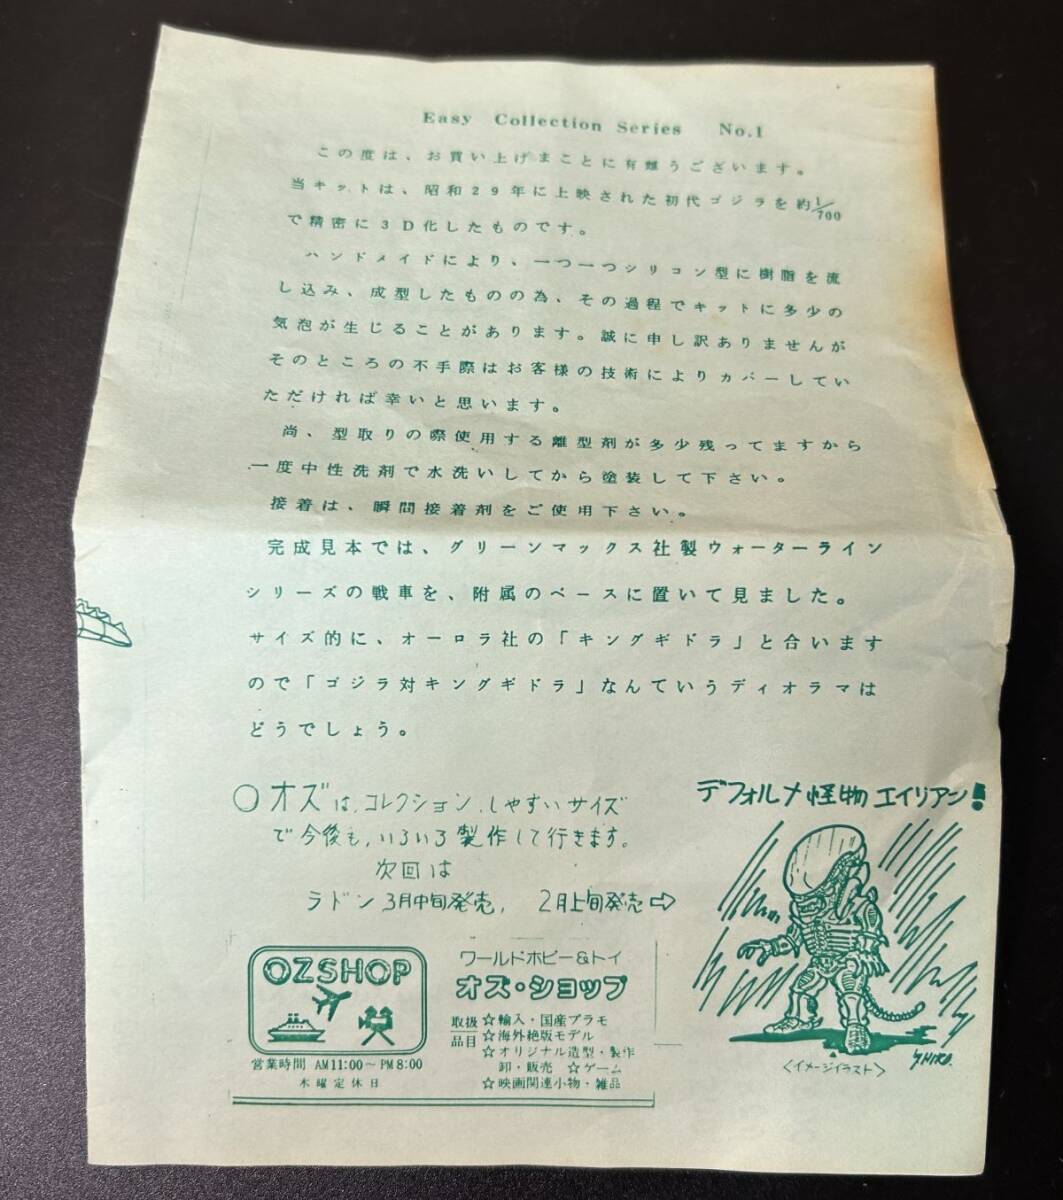 Easy Collection Series No.1
この度は、お買い上げまことに有難うございます。
当キットは、昭和29年に上映された初代ゴジラを約1/700
で精密に3D化したものです。
ハンドメイドにより、一つ一つシリコン型に樹脂を流
し込み、成型したものの為、その過程でキットに多少の
気泡が生じることがあります。誠に申し訳ありませんが
そのところの不手際はお客様の技術によりカバーしてい
ただければ幸いと思います。
尚、型取りの際使用する離型剤が多少残ってますから
一度中性洗剤で水洗いしてから塗装して下さい。
接着は、瞬間接着剤をご使用下さい。
完成見本では、グリーンマックス社製ウォーターライン
シリーズの戦車を、附属のベースに置いて見ました。
サイズ的に、オーロラ社の「キングギドラ」と合います
ので「ゴジラ対キングギドラ」なんていうディオラマは
どうでしょう。
○オズは、コレクション、しやすいサイズ
で今後も、いろいろ製作して行きます。
次回は
ラドン3月中旬発売, 2月上旬発売⇨
デフォルメ怪物エイリアン!
<イメージイラスト>
Y.HIRO.
OZSHOP
営業時間 AM11:00~PM8:00
木曜定休日
ワールドホビー&トイ
オズ・ショップ
取扱品目
☆輸入・国産プラモ
☆海外絶版モデル
☆オリジナル造型・製作
卸・販売 ☆ゲーム
☆映画関連小物・雑品